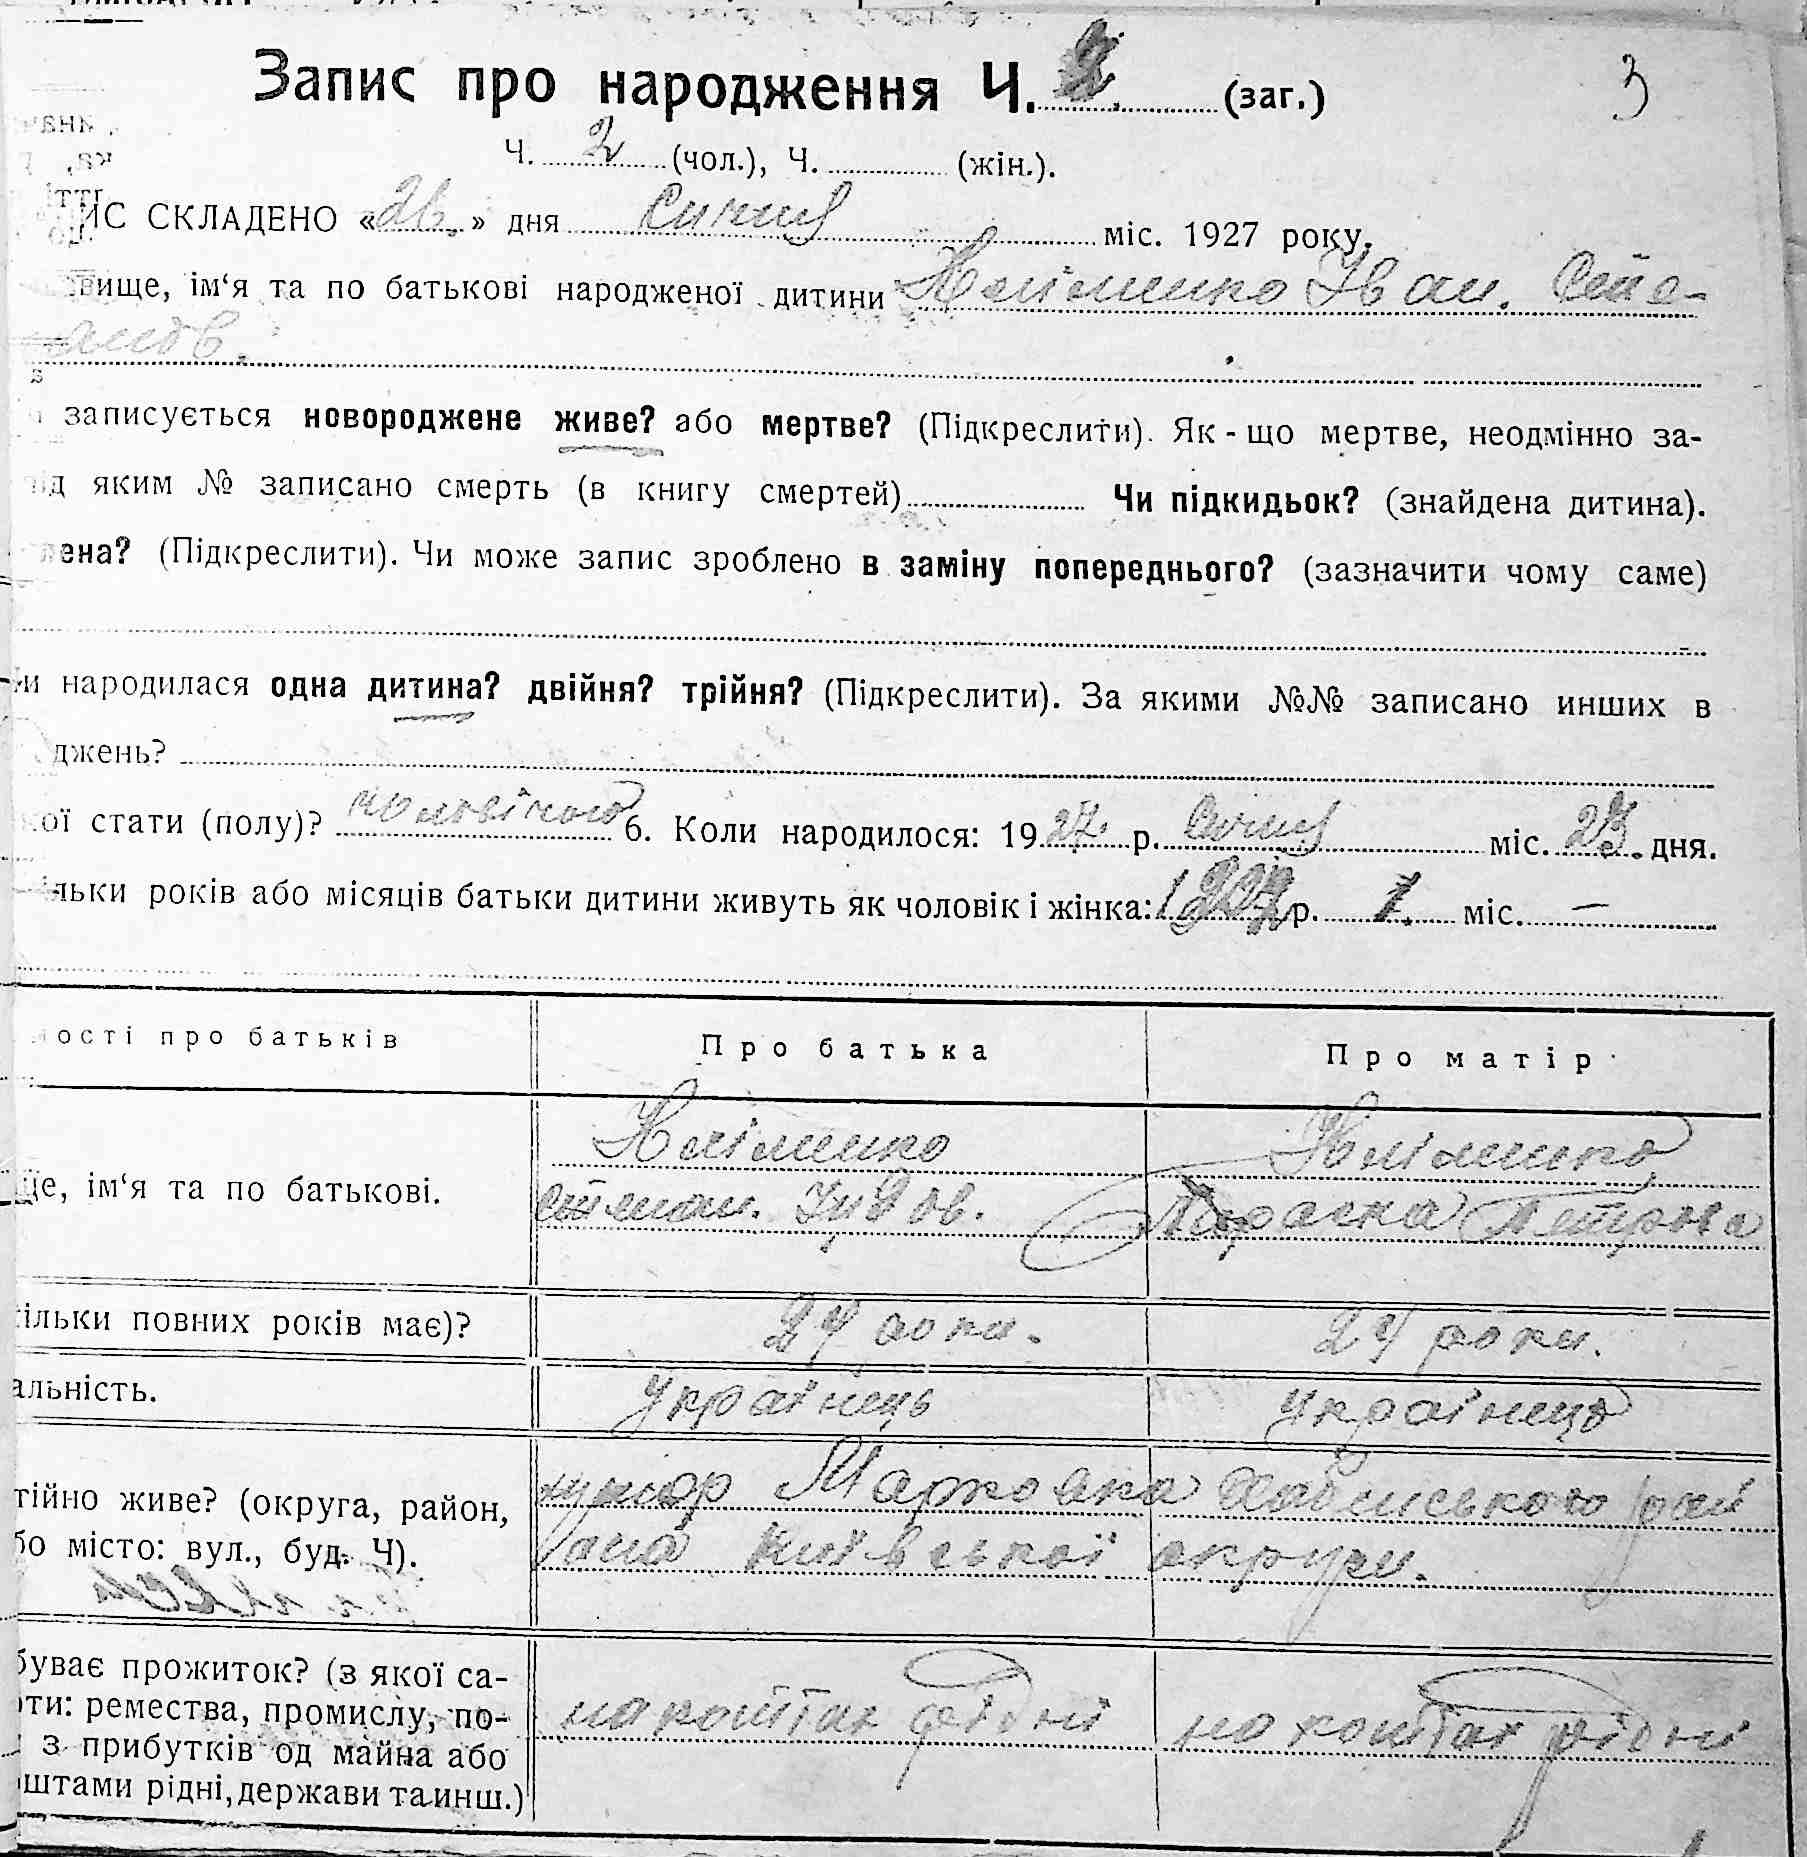 Запис про народження Ч. (заг.) 3
Ч. 2 (чол.), Ч. (жін.).
ИС СКЛАДЕНО «26.» дня Січня міс. 1927 року.
вище, ім‘я та по батькові народженої дитини Кліменко Іван. Степ-
анов.
записується новороджене живе? або мертве? (Підкреслити). Як-що мертве, неодмінно за-
ід яким № записано смерть (в книгу смертей) Чи підкидьок? (знайдена дитина).
лена? (Підкреслити). Чи може запис зроблено в заміну попереднього? (зазначити чому саме)
и народилася одна дитина? двійня? трійня? (Підкреслити). За якими №№ записано инших в
джень?
кої стати (полу)? чоловічого 6. Коли народилося: 1927. р. Січня міс. 23. дня.
ільки років або місяців батьки дитини живуть як чоловік і жінка: р. 1. міс. —
мості про батьків Про батька Про матір
Кліменко Кліменко
ще, ім‘я та по батькові. Параска Петрова
ільки повних років має)? 24 роки. 24 роки.
альність. українець українець
тійно живе? (округа, район, хутор Марковка рай
бо місто: вул., буд. Ч). она Київської округи.
буває прожиток? (з якої са-
оти: ремества, промислу, по- на коштах рідні на коштах рідні
з прибутків од майна або
штами рідні, держави та инш.)